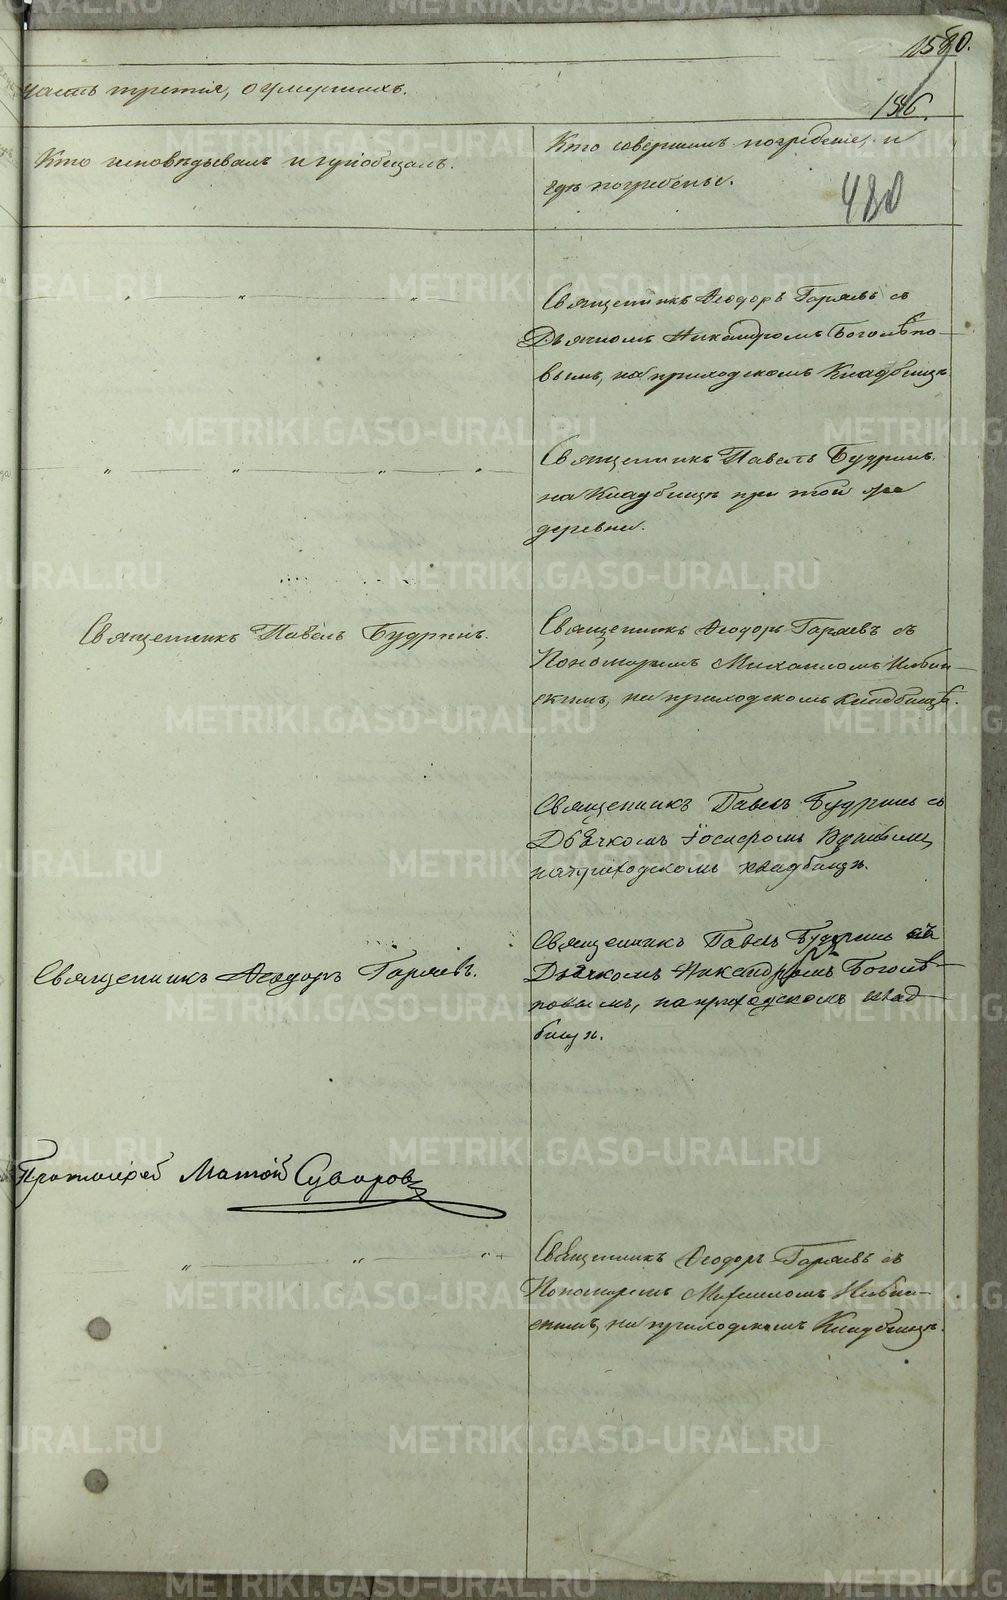 1580.
часть третія, о умершихъ.
186.
Кто исповѣдывалъ и пріобщалъ.
Кто совершилъ погребеніе, и
гдѣ погребены.
480
Священникъ Ѳеодоръ Горяевъ съ
Дьячкомъ Никандромъ Боголѣпо-
вымъ, на приходскомъ Кладбищѣ.
Священникъ Павелъ Будринъ.
на Кладбищѣ при той же
деревни.
Священникъ Павелъ Будринъ.
Священникъ Ѳеодоръ Горяевъ съ
Пономаремъ Михаиломъ
скимъ, на приходскомъ кладбищѣ.
Священникъ Павелъ Будринъ съ
Дьячкомъ
на приходскомъ кладбищѣ.
Священникъ Ѳеодоръ Горяевъ.
Священникъ Павелъ Будринъ съ
Дьячкомъ Никандромъ Боголѣ-
повымъ, на приходскомъ клад-
бищѣ.
Протоіерей Матѳій Суворовъ
Священникъ Ѳеодоръ Горяевъ съ
Пономаремъ Михаиломъ
скимъ, на приходскомъ Кладбищѣ.
METRIKI.GASO-URAL.RU